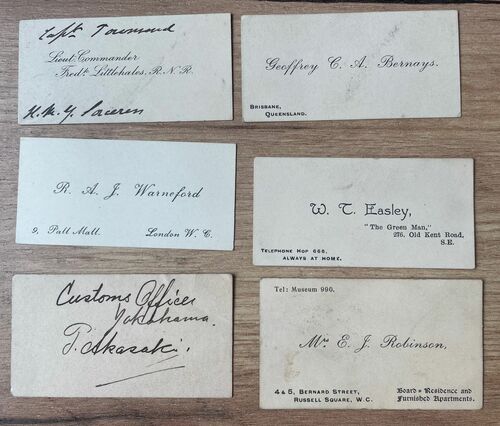 Capt. Townsend
Lieut. Commander
Fredk. Littlehales, R.N.R.
H.M.Y.
Geoffrey C. A. Bernays.
Brisbane,
Queensland.
R. A. J. Warneford
9, Pall Mall.
London W. C.
W. T. Easley,
"The Green Man,"
276, Old Kent Road,
S.E.
Telephone Hop 666.
Always at Home.
Customs Officer
Yokohama
T. Akasaki.
Tel: Museum 990.
Mrs E. J. Robinson,
4 & 5, Bernard Street,
Russell Square, W.C.
Board & Residence and
Furnished Apartments.